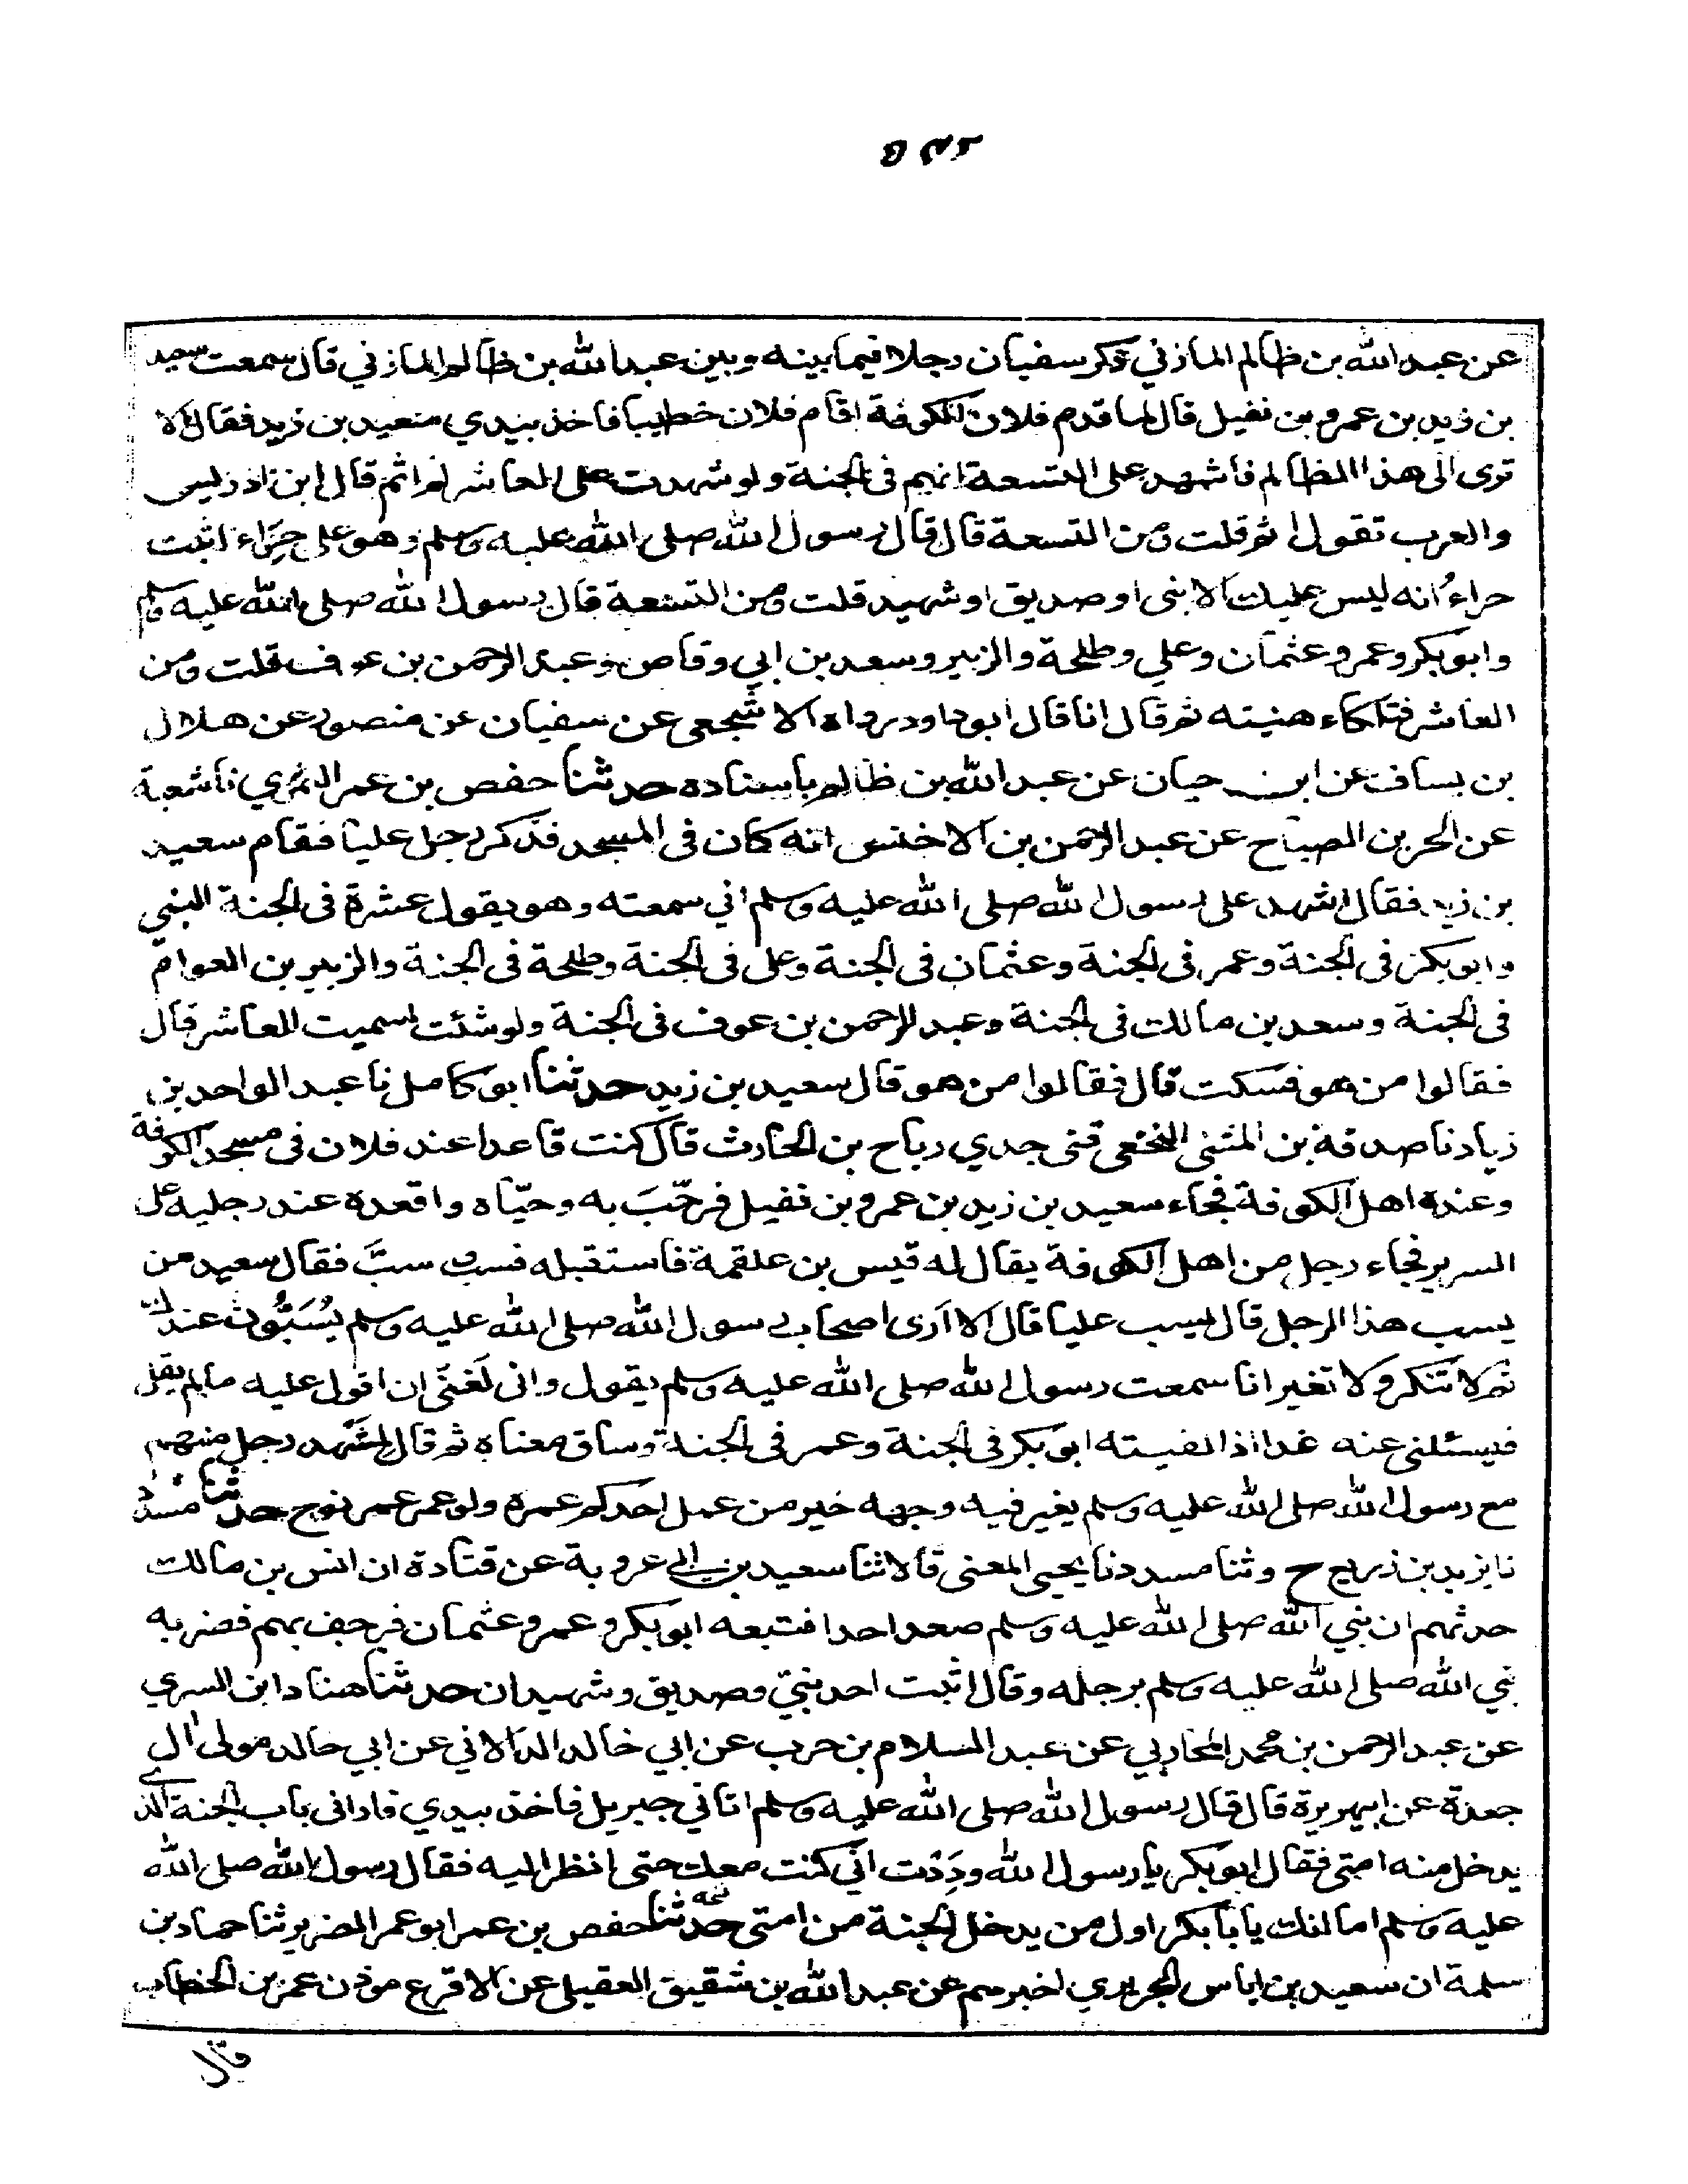 عن عبد الله بن ظالم المازني ذكر سفيان رجلا فيما بينه وبين عبد الله بن ظالم المازني قال سمعت سعيد
بن زيد بن عمرو بن نفيل قال لما قدم فلان الكوفة اقام فلان خطيبا فاخذ بيدي سعيد بن زيد فقال الا
ترى الى هذا الظالم فاشهد على التسعة انهم في الجنة ولو شهدت على العاشر لم اثم قال ابن ادريس
والعرب تقول اثم قلت ومن التسعة قال قال رسول الله صلى الله عليه وسلم وهو على حراء اثبت
حراء انه ليس عليك الا نبي او صديق او شهيد قلت ومن التسعة قال رسول الله صلى الله عليه وسلم
وابو بكر وعمر وعثمان وعلي وطلحة والزبير وسعد بن ابي وقاص وعبد الرحمن بن عوف قلت ومن
العاشر فتلكاء هنيته ثم قال انا قال ابو داود رواه الاشجعي عن سفيان عن منصور عن هلال
بن يساف عن ابن حيان عن عبد الله بن ظالم باسناده حدثنا حفص بن عمر النمري نا شعبة
عن الحر بن الصباح عن عبد الرحمن بن الاخنس انه كان في المسجد فذكر رجل عليا فقام سعيد
بن زيد فقال اشهد على رسول الله صلى الله عليه وسلم اني سمعته وهو يقول عشرة في الجنة النبي
وابو بكر في الجنة وعمر في الجنة وعثمان في الجنة وعلى في الجنة وطلحة في الجنة والزبير بن العوام
في الجنة وسعد بن مالك في الجنة وعبد الرحمن بن عوف في الجنة ولو شئت لسميت العاشر قال
فقالوا من هو فسكت قال فقالوا من هو قال سعيد بن زيد حدثنا ابو كامل نا عبد الواحد بن
زياد نا صدقة بن المثنى النخعي ثنى جدي رباح بن الحارث قال كنت قاعدا عند فلان في مسجد الكوفة
وعنده اهل الكوفة فجاء سعيد بن زيد بن عمرو بن نفيل فرحّبَ به وحيّاه واقعده عند رجليه على
السرير فجاء رجل من اهل الكوفة يقال له قيس بن علقمة فاستقبله فسب سبَّ فقال سعيد من
يسب هذا الرجل قال يسب عليا قال الا ارى اصحاب رسول الله صلى الله عليه وسلم يُسَبُّون عندك
ثم لا تنكر ولا تغير انا سمعت رسول الله صلى الله عليه وسلم يقول واني لَغنيّ ان اقول عليه ما لم يقل
فيسئلني عنه غدا اذا لقيته ابو بكر في الجنة وعمر في الجنة وساق معناه ثم قال لمشهد رجل منهم
مع رسول الله صلى الله عليه وسلم يغبر فيه وجهه خير من عمل احدكم عمره ولو عمر عمر نوح حدثنا مسدد
نا يزيد بن زريع ح وثنا مسدد نا يحيى المعنى قالا ثنا سعيد بن ابي عروبة عن قتادة ان انس بن مالك
حدثهم ان نبي الله صلى الله عليه وسلم صعد احدا فتبعه ابو بكر وعمر وعثمان فرجف بهم فضربه
نبي الله صلى الله عليه وسلم برجله وقال اثبت احد نبيّ وصديق وشهيدان حدثنا هناد ابن السري
عن عبد الرحمن بن محمد المحاربي عن عبد السلام بن حرب عن ابي خالد الدالاني عن ابي خالد مولى ال
جعدة عن ابي هريرة قال قال رسول الله صلى الله عليه وسلم اتاني جبريل فاخذ بيدي فاراني باب الجنة الذي
يدخل منه امتي فقال ابو بكر يا رسول الله ودِدْت اني كنت معك حتى انظر اليه فقال رسول الله صلى الله
عليه وسلم اما انك يا با بكر اول من يدخل الجنة من امتي حدثنا حفص بن عمر ابو عمر الضرير ثنا حماد بن
سلمة ان سعيد بن اياس الجريري اخبرهم عن عبد الله بن شقيق العقيلي عن الاقرع موذن عمر بن الخطاب
قال